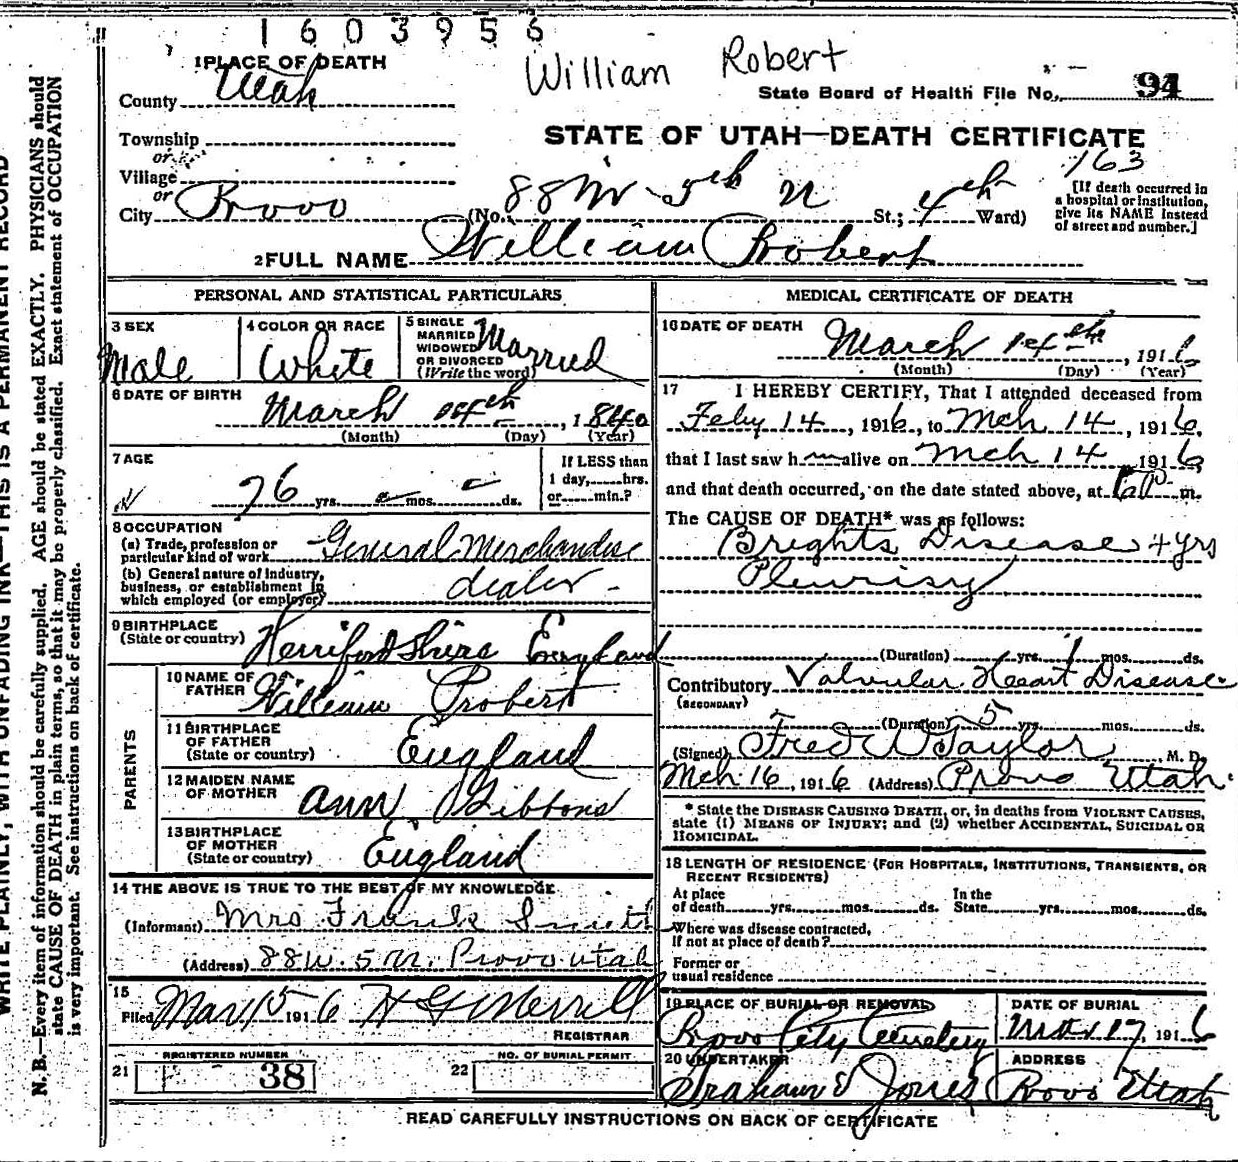 1603956
William Robert
1 PLACE OF DEATH
County Utah
State Board of Health File No. 94
Township
or
Village
or
City Provo
STATE OF UTAH—DEATH CERTIFICATE
163
(No. 88 W 5th N St.; 4th Ward)
[If death occurred in
a hospital or institution,
give its NAME instead
of street and number.]
2 FULL NAME William Probert
PERSONAL AND STATISTICAL PARTICULARS
3 SEX
Male
4 COLOR OR RACE
White
5 SINGLE
MARRIED
WIDOWED
OR DIVORCED
(Write the word)
Married
6 DATE OF BIRTH
March 14th, 1840
(Month) (Day) (Year)
7 AGE
76 yrs. mos. ds.
If LESS than
1 day, hrs.
or min.?
8 OCCUPATION
(a) Trade, profession or
particular kind of work General Merchandise
(b) General nature of industry,
business, or establishment in
which employed (or employer) dealer
9 BIRTHPLACE
(State or country) Herrifordshire England
PARENTS
10 NAME OF
FATHER William Probert
11 BIRTHPLACE
OF FATHER
(State or country) England
12 MAIDEN NAME
OF MOTHER Ann Gibbons
13 BIRTHPLACE
OF MOTHER
(State or country) England
14 THE ABOVE IS TRUE TO THE BEST OF MY KNOWLEDGE
(Informant) Mrs Frank Smith
(Address) 88 W. 5 N. Provo Utah
15
Filed Mar 15 1916 H G Merrill
REGISTRAR
REGISTERED NUMBER
21 38
NO. OF BURIAL PERMIT
22
MEDICAL CERTIFICATE OF DEATH
16 DATE OF DEATH
March 14th, 1916
(Month) (Day) (Year)
17 I HEREBY CERTIFY, That I attended deceased from
Feby 14, 1916, to Mch 14, 1916,
that I last saw h m alive on Mch 14 1916
and that death occurred, on the date stated above, at m.
The CAUSE OF DEATH* was as follows:
Brights Disease 4 yrs
Pleurisy
(Duration) yrs. 1 mos. ds.
Contributory Valvular Heart Disease
(SECONDARY)
(Duration) 5 yrs. mos. ds.
(Signed) Fred W Taylor M. D.
Mch 16, 1916 (Address) Provo Utah.
* State the DISEASE CAUSING DEATH, or, in deaths from VIOLENT CAUSES,
state (1) MEANS OF INJURY; and (2) whether ACCIDENTAL, SUICIDAL OR
HOMICIDAL.
18 LENGTH OF RESIDENCE (FOR HOSPITALS, INSTITUTIONS, TRANSIENTS, OR
RECENT RESIDENTS)
At place
of death yrs. mos. ds.
In the
State yrs. mos. ds.
Where was disease contracted,
If not at place of death?
Former or
usual residence
19 PLACE OF BURIAL OR REMOVAL
Provo City Cemetery
DATE OF BURIAL
Mar 17, 1916
20 UNDERTAKER
Graham & Jones
ADDRESS
Provo Utah
READ CAREFULLY INSTRUCTIONS ON BACK OF CERTIFICATE
WRITE PLAINLY, WITH UNFADING INK—THIS IS A PERMANENT RECORD
N. B.—Every item of information should be carefully supplied. AGE should be stated EXACTLY. PHYSICIANS should
state CAUSE OF DEATH in plain terms, so that it may be properly classified. Exact statement of OCCUPATION
is very important. See instructions on back of certificate.